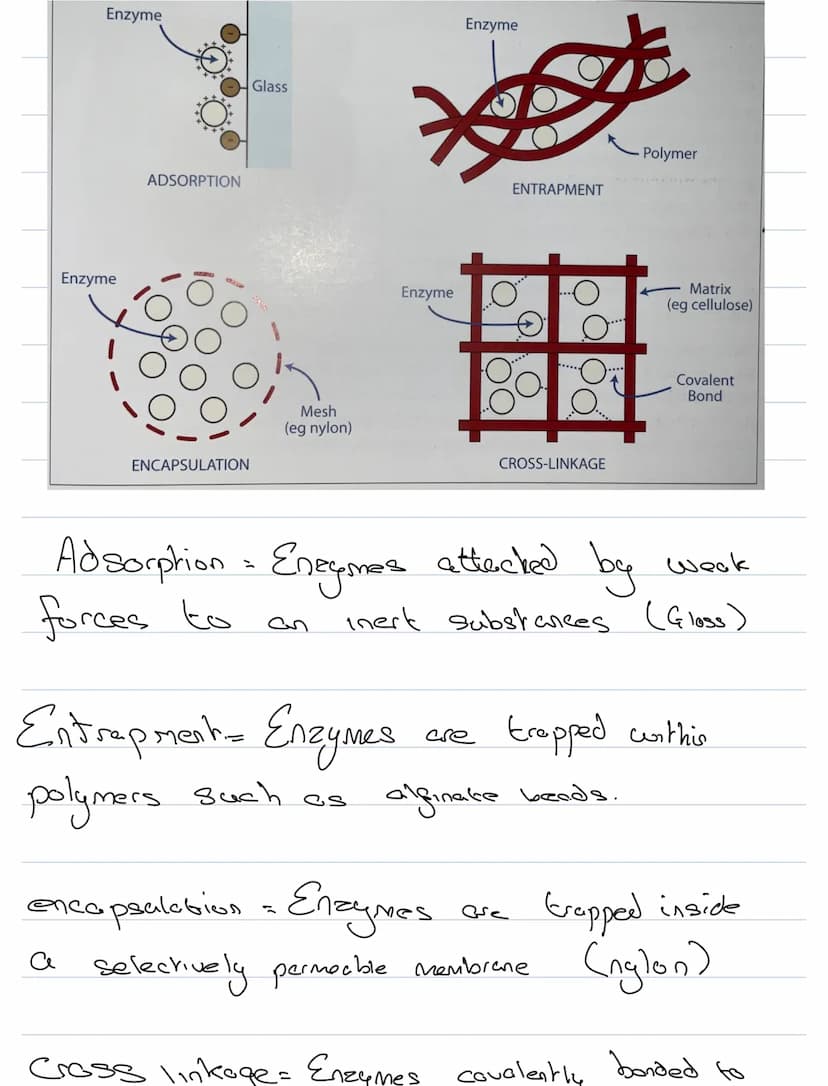 Enzyme
Glass
ADSORPTION
Enzyme
Polymer
ENTRAPMENT
Enzyme
Mesh
(eg nylon)
ENCAPSULATION
Enzyme
Matrix
(eg cellulose)
Covalent
Bond
CROSS-LINKAGE
Adsorption = Enzymes attacked by weak
forces to an inert substances (Glass)
Entrapment = Enzymes are trapped within
polymers such as alginate beads.
encapsulation = Enzymes are trapped inside
a selectively permeable membrane (nylon)
Cross linkage = Enzymes covalently bonded to